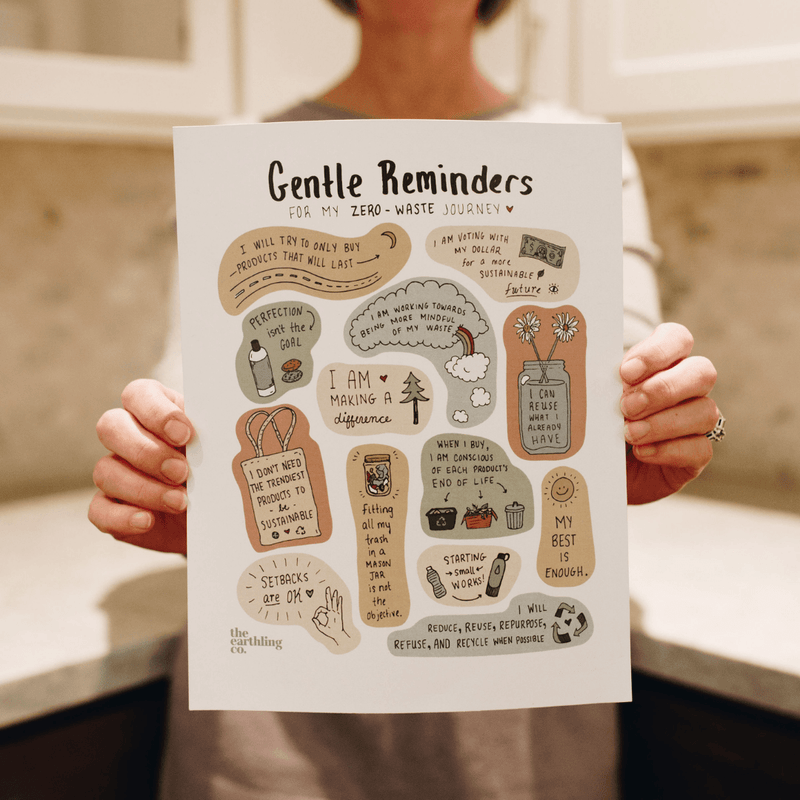 Gentle Reminders
FOR MY ZERO-WASTE JOURNEY
I WILL TRY TO ONLY BUY
PRODUCTS THAT WILL LAST
I AM VOTING WITH
MY DOLLAR
for a more
SUSTAINABLE
future
PERFECTION
isn't the
GOAL
I AM WORKING TOWARDS
BEING MORE MINDFUL
OF MY WASTE
I AM
MAKING A
difference
I CAN
REUSE
WHAT I
ALREADY
HAVE
I DON'T NEED
THE TRENDIEST
PRODUCTS TO
be
SUSTAINABLE
fitting
all my
trash
in a
MASON
JAR
is not
the
objective.
WHEN I BUY,
I AM CONSCIOUS
OF EACH PRODUCT'S
END OF LIFE
MY
BEST
IS
ENOUGH.
SETBACKS
are OK
STARTING
small
WORKS!
I WILL
REDUCE, REUSE, REPURPOSE,
REFUSE, AND RECYCLE WHEN POSSIBLE
the
earthling
co.